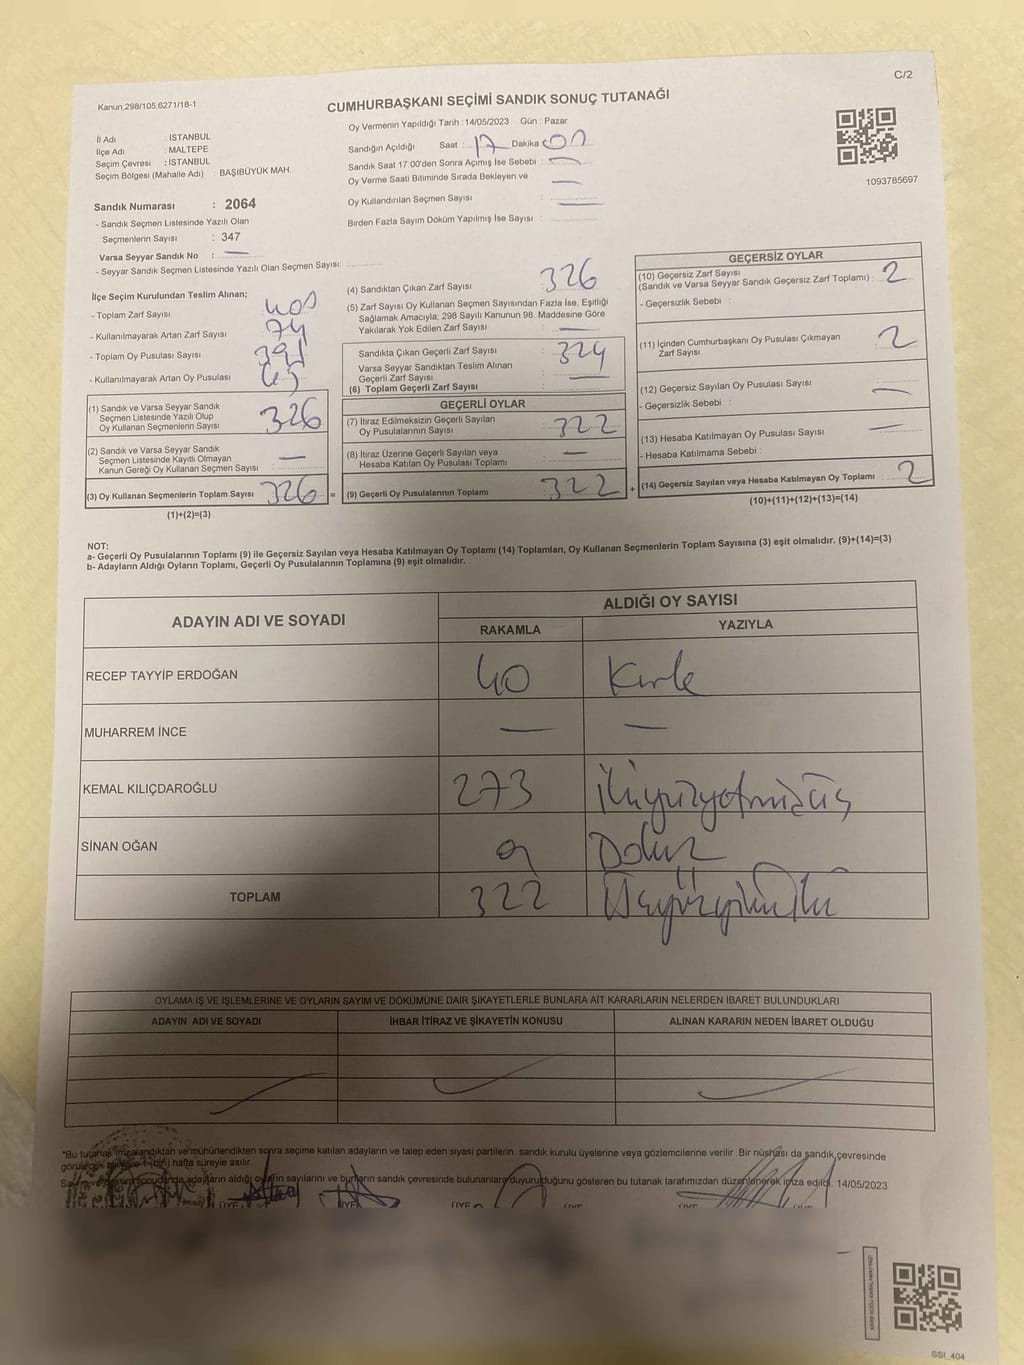 C/2
Kanun;298/105,6271/18-1
CUMHURBAŞKANI SEÇİMİ SANDIK SONUÇ TUTANAĞI
İl Adı : İSTANBUL
İlçe Adı : MALTEPE
Seçim Çevresi : İSTANBUL
Seçim Bölgesi (Mahalle Adı) : BAŞIBÜYÜK MAH.
Oy Vermenin Yapıldığı Tarih :14/05/2023 Gün : Pazar
Sandığın Açıldığı Saat : 17 Dakika : 00
Sandık Saat 17:00'den Sonra Açımış İse Sebebi : —
Oy Verme Saati Bitiminde Sırada Bekleyen ve —
Oy Kullandırılan Seçmen Sayısı : —
Birden Fazla Sayım Döküm Yapılmış İse Sayısı :
1093785697
Sandık Numarası : 2064
- Sandık Seçmen Listesinde Yazılı Olan
Seçmenlerin Sayısı : 347
Varsa Seyyar Sandık No : —
- Seyyar Sandık Seçmen Listesinde Yazılı Olan Seçmen Sayısı:
İlçe Seçim Kurulundan Teslim Alınan;
- Toplam Zarf Sayısı
- Kullanılmayarak Artan Zarf Sayısı 74
- Toplam Oy Pusulası Sayısı
- Kullanılmayarak Artan Oy Pusulası
(1) Sandık ve Varsa Seyyar Sandık
Seçmen Listesinde Yazılı Olup
Oy Kullanan Seçmenlerin Sayısı 326
(2) Sandık ve Varsa Seyyar Sandık
Seçmen Listesinde Kayıtlı Olmayan
Kanun Gereği Oy Kullanan Seçmen Sayısı —
(3) Oy Kullanan Seçmenlerin Toplam Sayısı 326 =
(1)+(2)=(3)
(4) Sandıktan Çıkan Zarf Sayısı 326
(5) Zarf Sayısı Oy Kullanan Seçmen Sayısından Fazla İse, Eşitliği
Sağlamak Amacıyla; 298 Sayılı Kanunun 98. Maddesine Göre
Yakılarak Yok Edilen Zarf Sayısı —
Sandıkta Çıkan Geçerli Zarf Sayısı : 324
Varsa Seyyar Sandıktan Teslim Alınan
Geçerli Zarf Sayısı : —
(6) Toplam Geçerli Zarf Sayısı :
GEÇERLİ OYLAR
(7) İtiraz Edilmeksizin Geçerli Sayılan
Oy Pusulalarının Sayısı : 322
(8) İtiraz Üzerine Geçerli Sayılan veya
Hesaba Katılan Oy Pusulası Toplamı —
(9) Geçerli Oy Pusulalarının Toplamı 322 +
GEÇERSİZ OYLAR
(10) Geçersiz Zarf Sayısı
(Sandık ve Varsa Seyyar Sandık Geçersiz Zarf Toplamı) : 2
- Geçersizlik Sebebi :
(11) İçinden Cumhurbaşkanı Oy Pusulası Çıkmayan
Zarf Sayısı 2
(12) Geçersiz Sayılan Oy Pusulası Sayısı : —
- Geçersizlik Sebebi :
(13) Hesaba Katılmayan Oy Pusulası Sayısı : —
- Hesaba Katılmama Sebebi :
(14) Geçersiz Sayılan veya Hesaba Katılmayan Oy Toplamı : 2
(10)+(11)+(12)+(13)=(14)
NOT:
a- Geçerli Oy Pusulalarının Toplamı (9) ile Geçersiz Sayılan veya Hesaba Katılmayan Oy Toplamı (14) Toplamları, Oy Kullanan Seçmenlerin Toplam Sayısına (3) eşit olmalıdır. (9)+(14)=(3)
b- Adayların Aldığı Oyların Toplamı, Geçerli Oy Pusulalarının Toplamına (9) eşit olmalıdır.
ADAYIN ADI VE SOYADI
ALDIĞI OY SAYISI
RAKAMLA YAZIYLA
RECEP TAYYİP ERDOĞAN 40 Kırk
MUHARREM İNCE — —
KEMAL KILIÇDAROĞLU 273 İkiyüzyetmişüç
SİNAN OĞAN 9 Dokuz
TOPLAM 322 Üçyüzyirmiiki
OYLAMA İŞ VE İŞLEMLERİNE VE OYLARIN SAYIM VE DÖKÜMÜNE DAİR ŞİKAYETLERLE BUNLARA AİT KARARLARIN NELERDEN İBARET BULUNDUKLARI
ADAYIN ADI VE SOYADI İHBAR İTİRAZ VE ŞİKAYETİN KONUSU ALINAN KARARIN NEDEN İBARET OLDUĞU
*Bu tutanak imzalandıktan ve mühürlendikten sonra seçime katılan adayların ve talep eden siyasi partilerin sandık kurulu üyelerine veya gözlemcilerine verilir. Bir nüshası da sandık çevresinde
görülecek bir yere 1 (bir) hafta süreyle asılır.
adayların aldığı oyların sayılarını ve bunların sandık çevresinde bulunanlara duyurulduğunu gösteren bu tutanak tarafımızdan düzenlenerek imza edildi. 14/05/2023
ÜYE ÜYE ÜYE ÜYE ÜYE
SSI_404